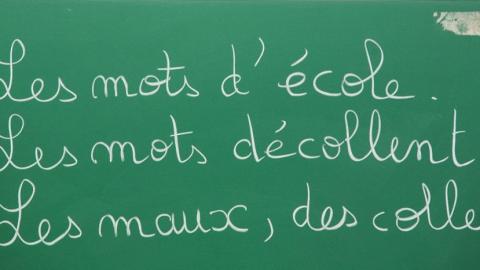 Les mots d'école.
Les mots décollent
Les maux, des colle